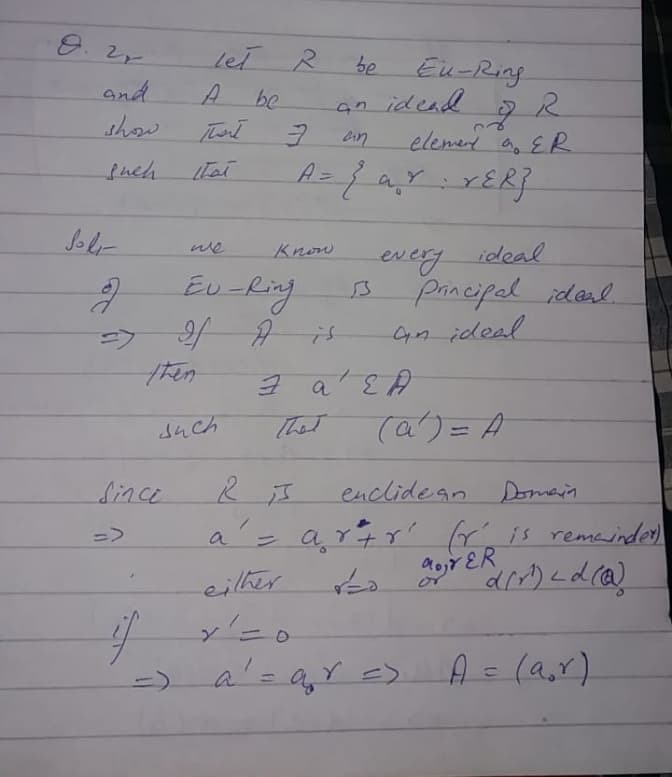 Q. 2,- Let R be Eu-Ring
and A be an ideal of R
show that ∃ an element a₀ ∈ R
such that A = { a₀r : r∈R}
Sol,- we know every ideal
of Eu-Ring is principal ideal.
=> If A is an ideal
then ∃ a' ∈ A
such that (a') = A
Since R is euclidean Domain
=> a' = a₀r + r' (r' is remainder)
a₀,r∈R
either r'=0 or d(r') < d(a₀)
if r' = 0
=> a' = a₀r => A = (a₀r)